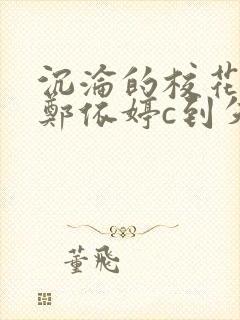 沉淪的校花
鄭依婷c到失
董飛